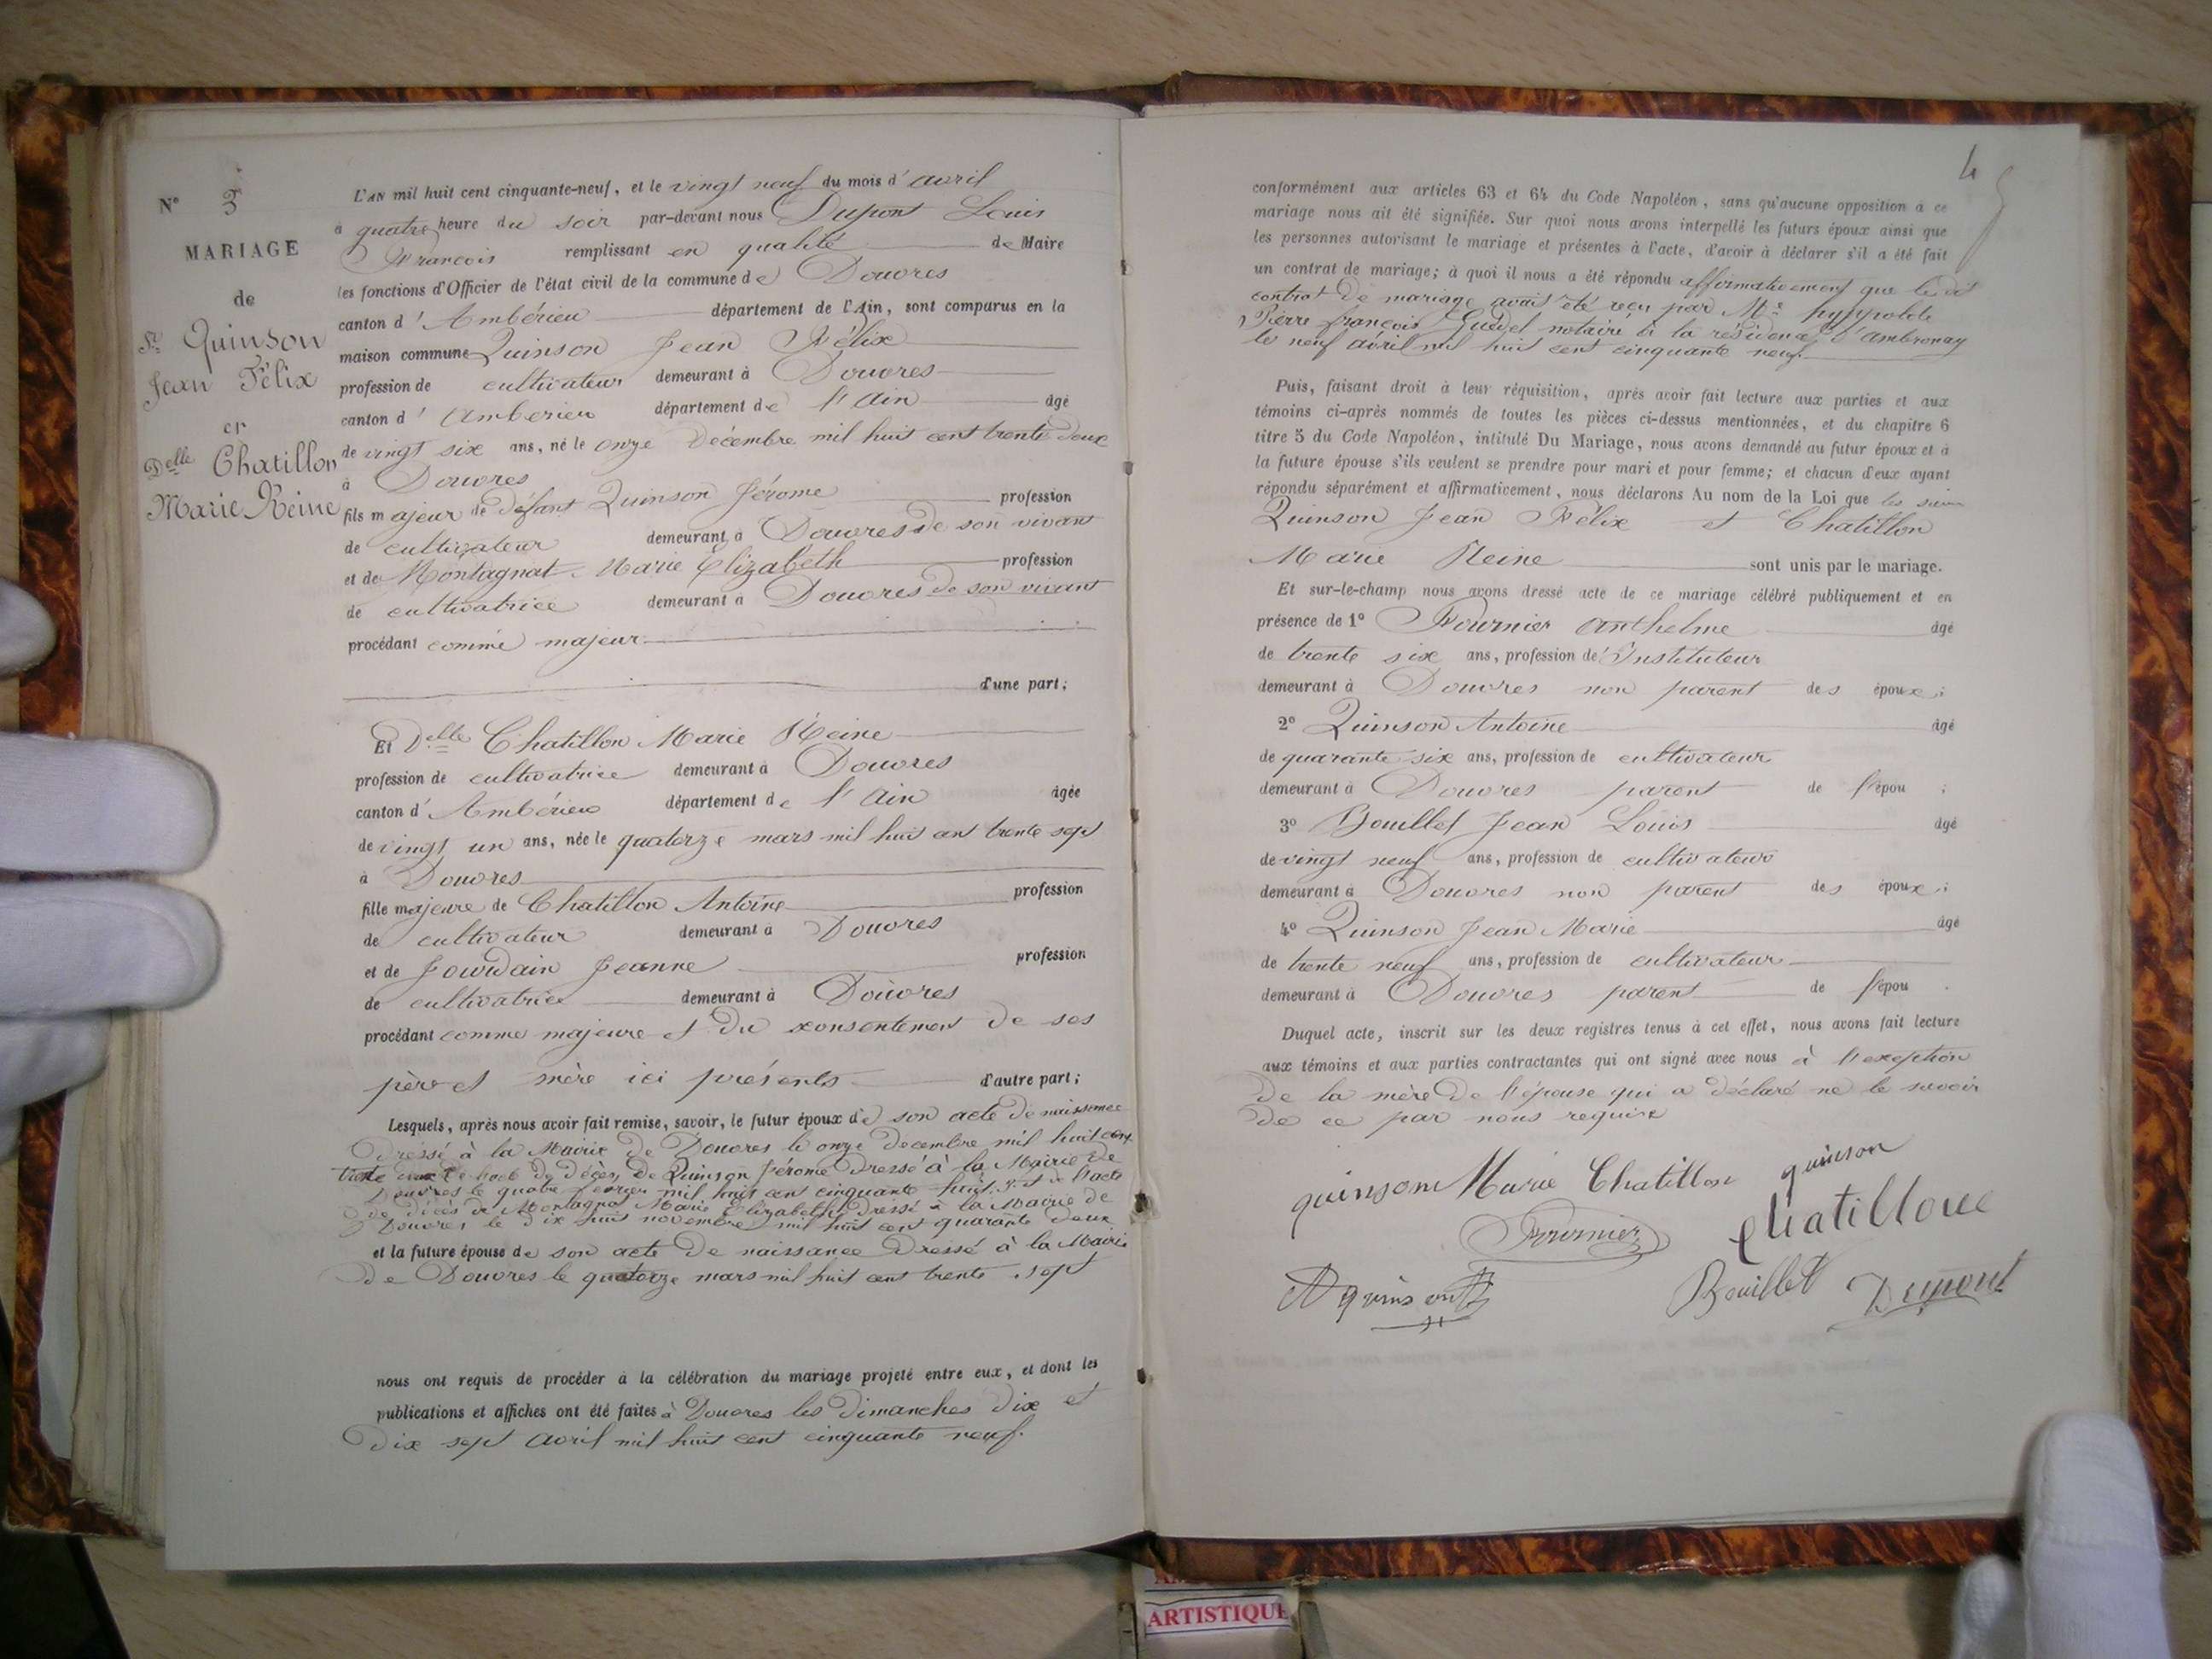 N° 3
MARIAGE
de
Sr. Quinson
Jean Félix
et
Delle Chatillon
Marie Reine
L'AN mil huit cent cinquante-neuf, et le vingt neuf du mois d'avril
à quatre heure du soir par-devant nous Dupont Louis
François remplissant en qualité de Maire
les fonctions d'Officier de l'état civil de la commune de Douvres
canton d'Ambérieu département de l'Ain, sont comparus en la
maison commune Quinson Jean Félix
profession de cultivateur demeurant à Douvres
canton d'Ambérieu département de l'Ain âgé
de vingt six ans, né le onze Décembre mil huit cent trente deux
à Douvres
fils majeur de défunt Quinson Jérome profession
de cultivateur demeurant à Douvres de son vivant
et de Montagnat Marie Elizabeth profession
de cultivatrice demeurant à Douvres de son vivant
procédant comme majeur
d'une part;
Et Delle Chatillon Marie Reine
profession de cultivatrice demeurant à Douvres
canton d'Ambérieu département de l'Ain âgée
de vingt un ans, née le quatorze mars mil huit cent trente sept
à Douvres
fille majeure de Chatillon Antoine profession
de cultivateur demeurant à Douvres
et de Jourdain Jeanne profession
de cultivatrice demeurant à Douvres
procédant comme majeure et du consentement de ses
père et mère ici présents d'autre part;
Lesquels, après nous avoir fait remise, savoir, le futur époux de son acte de naissance
Dressé à la Mairie de Douvres le onze Decembre mil huit cent
trente deux de l'acte de décès de Quinson Jérome Dressé à la Mairie de
Douvres le quatre fevrier mil huit cent cinquante huit et de l'acte
de décès de Montagnat Marie Elizabeth dressé à la Mairie de
Douvres le dix huit novembre mil huit cent quarante deux
et la future épouse de son acte de naissance Dressé à la Mairie
de Douvres le quatorze mars mil huit cent trente sept
nous ont requis de procéder à la célébration du mariage projeté entre eux, et dont les
publications et affiches ont été faites à Douvres les Dimanches Dix et
Dix sept avril mil huit cent cinquante neuf.
4
conformément aux articles 63 et 64 du Code Napoléon, sans qu'aucune opposition à ce
mariage nous ait été signifiée. Sur quoi nous avons interpellé les futurs époux ainsi que
les personnes autorisant le mariage et présentes à l'acte, d'avoir à déclarer s'il a été fait
un contrat de mariage; à quoi il nous a été répondu affirmativement que le dit
contrat de mariage avait été reçu par Me hyppolite
Pierre françois notaire à la résidence d'ambronay
le neuf avril mil huit cent cinquante neuf
Puis, faisant droit à leur réquisition, après avoir fait lecture aux parties et aux
témoins ci-après nommés de toutes les pièces ci-dessus mentionnées, et du chapitre 6
titre 5 du Code Napoléon, intitulé Du Mariage, nous avons demandé au futur époux et à
la future épouse s'ils veulent se prendre pour mari et pour femme; et chacun d'eux ayant
répondu séparément et affirmativement, nous déclarons Au nom de la Loi que les
Quinson Jean Félix et Chatillon
Marie Reine sont unis par le mariage.
Et sur-le-champ nous avons dressé acte de ce mariage célébré publiquement et en
présence de 1° Fournier Anthelme âgé
de trente six ans, profession de Instituteur
demeurant à Douvres non parent des époux;
2° Quinson Antoine âgé
de quarante six ans, profession de cultivateur
demeurant à Douvres parent de l'épou ;
3° Bouillet Jean Louis âgé
de vingt neuf ans, profession de cultivateur
demeurant à Douvres non parent des époux;
4° Quinson Jean Marie âgé
de trente neuf ans, profession de cultivateur
demeurant à Douvres parent de l'épou .
Duquel acte, inscrit sur les deux registres tenus à cet effet, nous avons fait lecture
aux témoins et aux parties contractantes qui ont signé avec nous à l'exeption
de la mère De l'épouse qui a déclaré ne le savoir
De ce par nous requise
quinson Marie Chatillon quinson
Fournier Chatillon
A quinson Bouillet Dupont
ARTISTIQUE